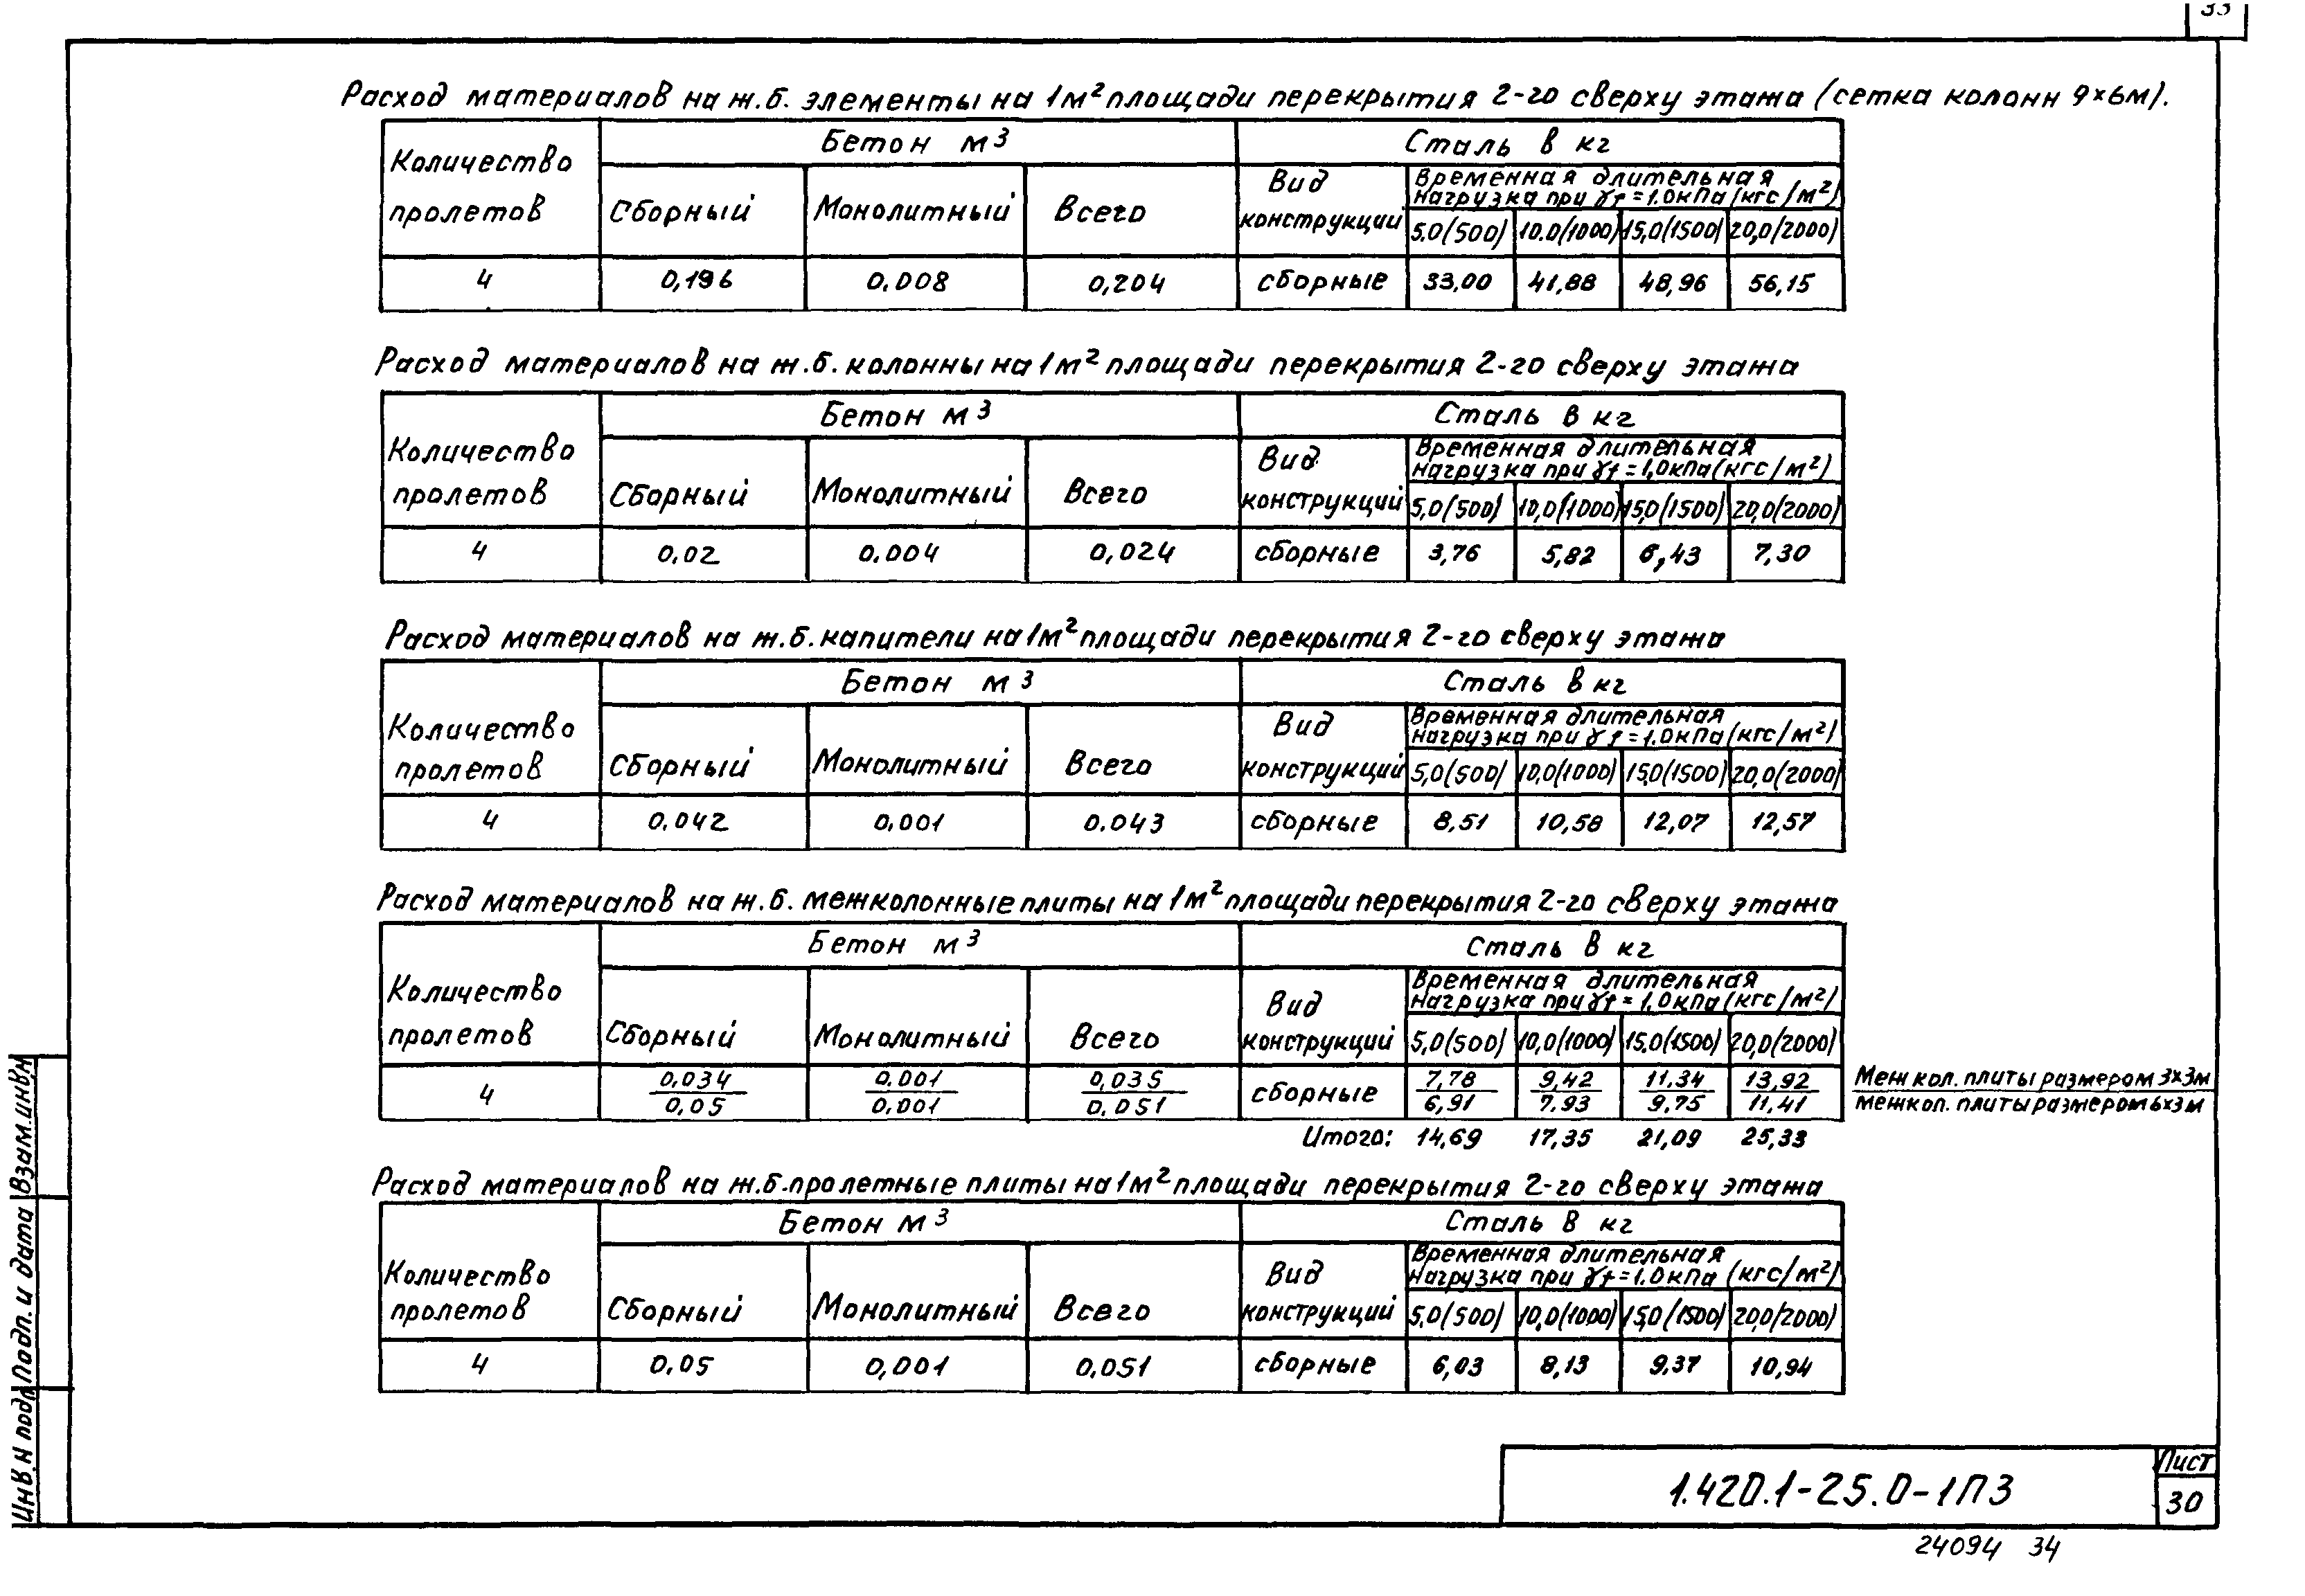 33
Расход материалов на ж.б. элементы на 1м² площади перекрытия 2-го сверху этажа (сетка колонн 9×6м).
Количество пролетов | Бетон м³ | Сталь в кг
Сборный | Монолитный | Всего | Вид конструкции | Временная длительная нагрузка при γf = 1.0 кПа (кгс/м²)
5.0(500) | 10.0(1000) | 15,0(1500) | 20,0(2000)
4 | 0,196 | 0.008 | 0,204 | сборные | 33,00 | 41,88 | 48,96 | 56,15
Расход материалов на ж.б. колонны на 1м² площади перекрытия 2-го сверху этажа
Количество пролетов | Бетон м³ | Сталь в кг
Сборный | Монолитный | Всего | Вид конструкций | Временная длительная нагрузка при γf = 1,0 кПа (кгс/м²)
5,0(500) | 10,0(1000) | 15,0(1500) | 20,0(2000)
4 | 0.02 | 0.004 | 0,024 | сборные | 3,76 | 5,82 | 6,43 | 7,30
Расход материалов на ж.б. капители на 1м² площади перекрытия 2-го сверху этажа
Количество пролетов | Бетон м³ | Сталь в кг
Сборный | Монолитный | Всего | Вид конструкций | Временная длительная нагрузка при γf = 1.0 кПа (кгс/м²)
5,0(500) | 10,0(1000) | 15,0(1500) | 20,0(2000)
4 | 0.042 | 0.001 | 0.043 | сборные | 8,51 | 10,58 | 12,07 | 12,57
Расход материалов на ж.б. межколонные плиты на 1м² площади перекрытия 2-го сверху этажа
Количество пролетов | Бетон м³ | Сталь в кг
Сборный | Монолитный | Всего | Вид конструкций | Временная длительная нагрузка при γf = 1.0 кПа (кгс/м²)
5,0(500) | 10,0(1000) | 15.0(1500) | 20,0(2000)
4 | 0,034 / 0,05 | 0.001 / 0.001 | 0,035 / 0.051 | сборные | 7,78 / 6,91 | 9,42 / 7.93 | 11.34 / 9,75 | 13,92 / 11,41
Меж кол. плиты размером 3×3м
межкол. плиты размером 6×3м
Итого: 14,69 | 17,35 | 21,09 | 25,33
Расход материалов на ж.б. пролетные плиты на 1м² площади перекрытия 2-го сверху этажа
Количество пролетов | Бетон м³ | Сталь в кг
Сборный | Монолитный | Всего | Вид конструкций | Временная длительная нагрузка при γf = 1.0 кПа (кгс/м²)
5.0(500) | 10,0(1000) | 15,0(1500) | 20,0(2000)
4 | 0.05 | 0,001 | 0,051 | сборные | 6,03 | 8,13 | 9,37 | 10,94
Инв. N подл. | Подп. и дата | Взам.инв.N
1.420.1-25.0-1ПЗ
Лист
30
24094 34